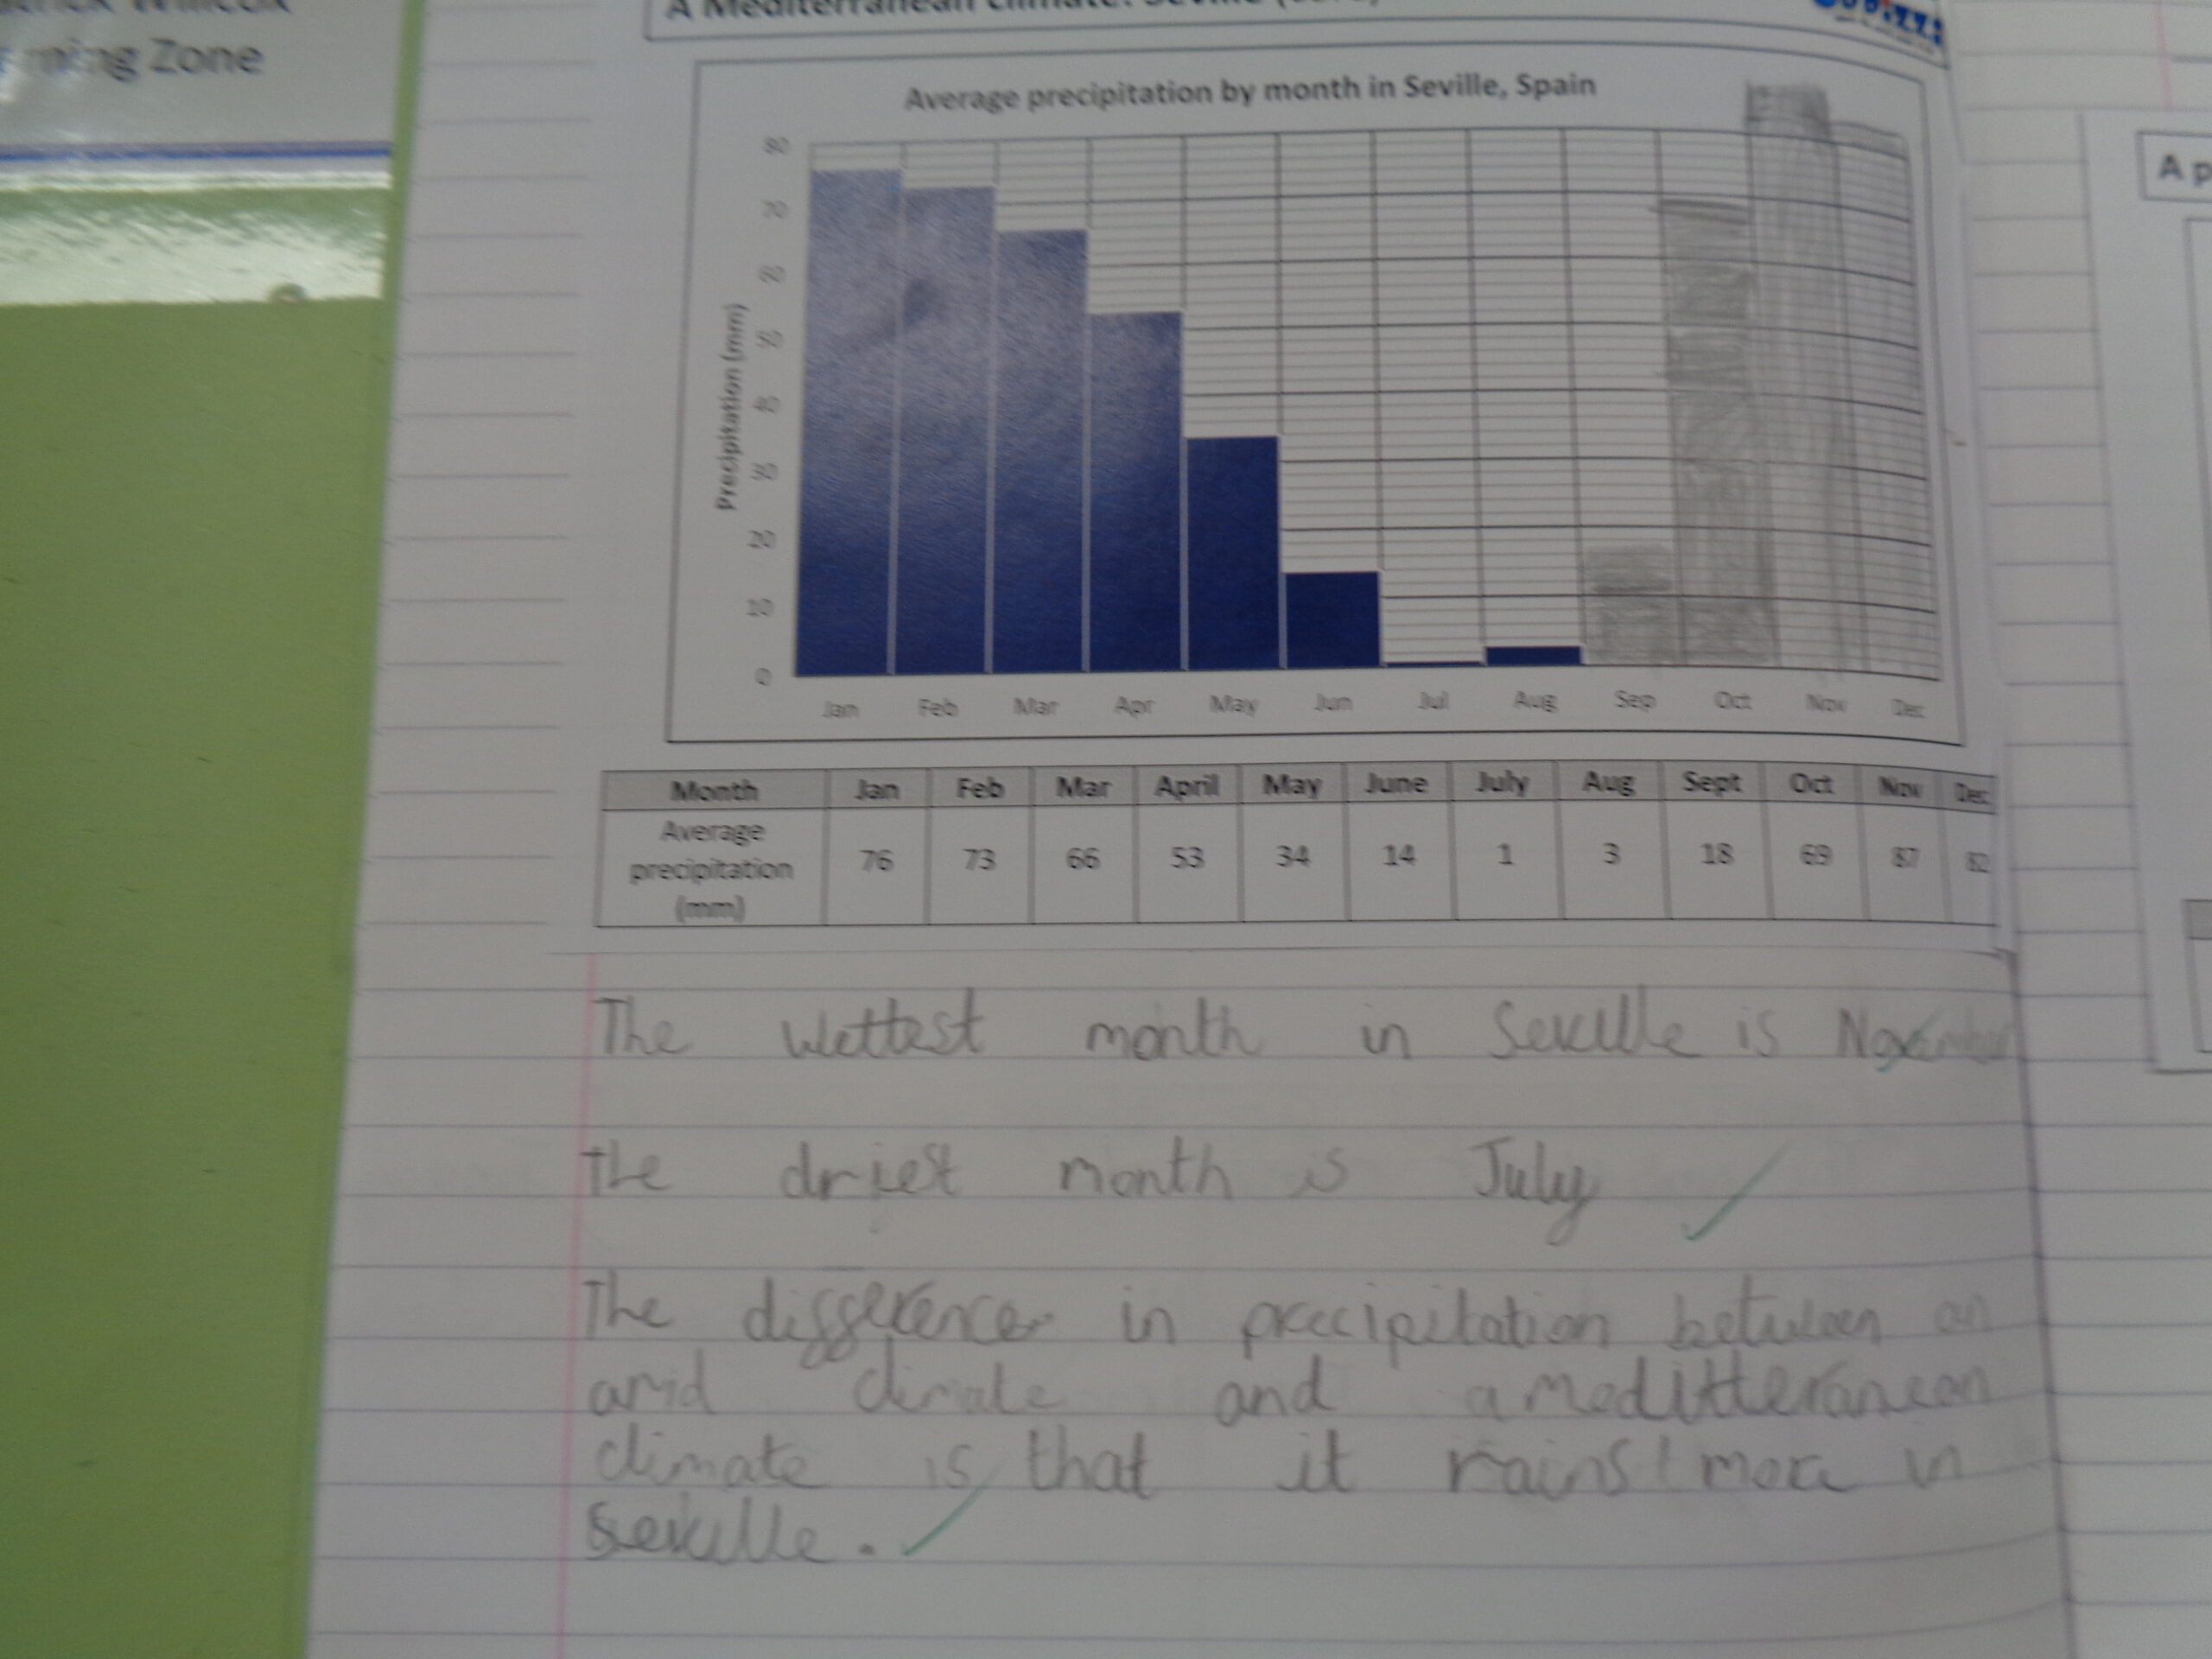 ming Zone
A Mediterranean climate: Seville
Average precipitation by month in Seville, Spain
Precipitation (mm)
80
70
60
50
40
30
20
10
0
Jan Feb Mar Apr May Jun Jul Aug Sep Oct Nov Dec
Month Jan Feb Mar April May June July Aug Sept Oct Nov Dec
Average
precipitation 76 73 66 53 34 14 1 3 18 69 87 82
(mm)
The wettest month in Seville is November
The driest month is July
The difference in precipitation between an
arid climate and a meditteranean
climate is that it rains more in
Seville.
A p